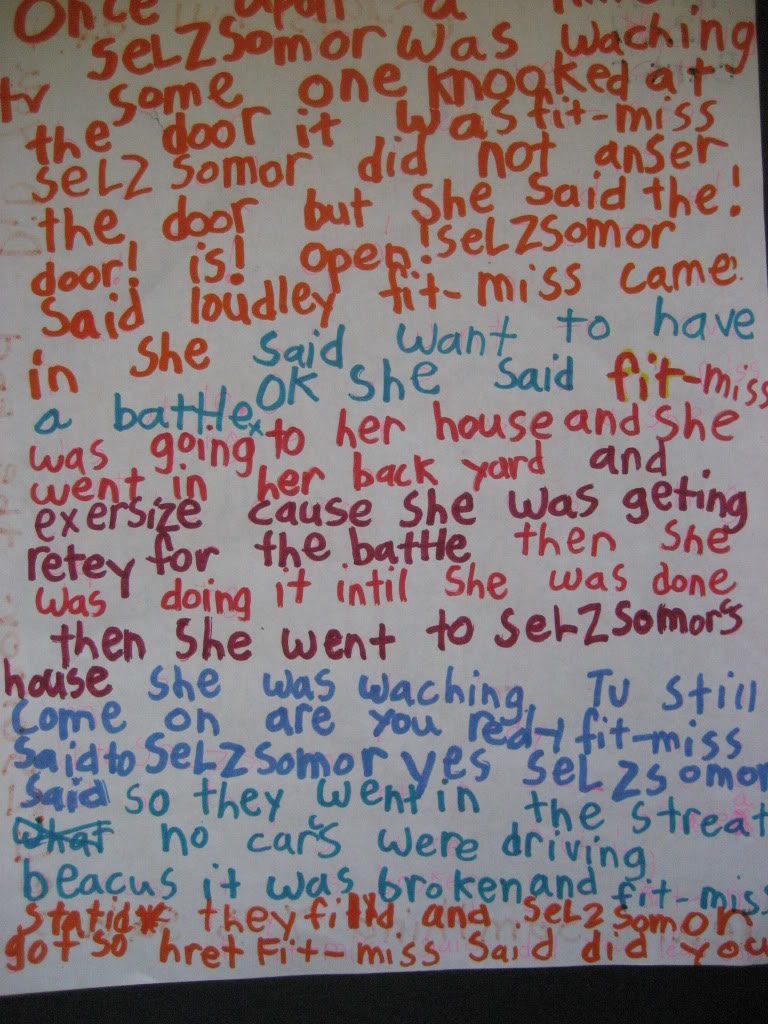 Once upon a time
seLZSomor was waching
tv some one knooked at
the door it was fit-miss
seLZ somor did not anser
the door but she said the!
door! is! open! seLZsomor
said loudley fit-miss came
in she said want to have
a battle OK she said fit-miss
was going to her house and she
went in her back yard and
exersize cause she was geting
retey for the battle then she
was doing it intil she was done
then she went to seLZsomor's
house she was waching Tv still
come on are you redy fit-miss
said to SeLZsomor yes seLZsomor
said so they went in the streat
what no cars were driving
beacus it was broken and fit-miss
statid they filld and SeLZsomor
got so hret Fit-miss said did you